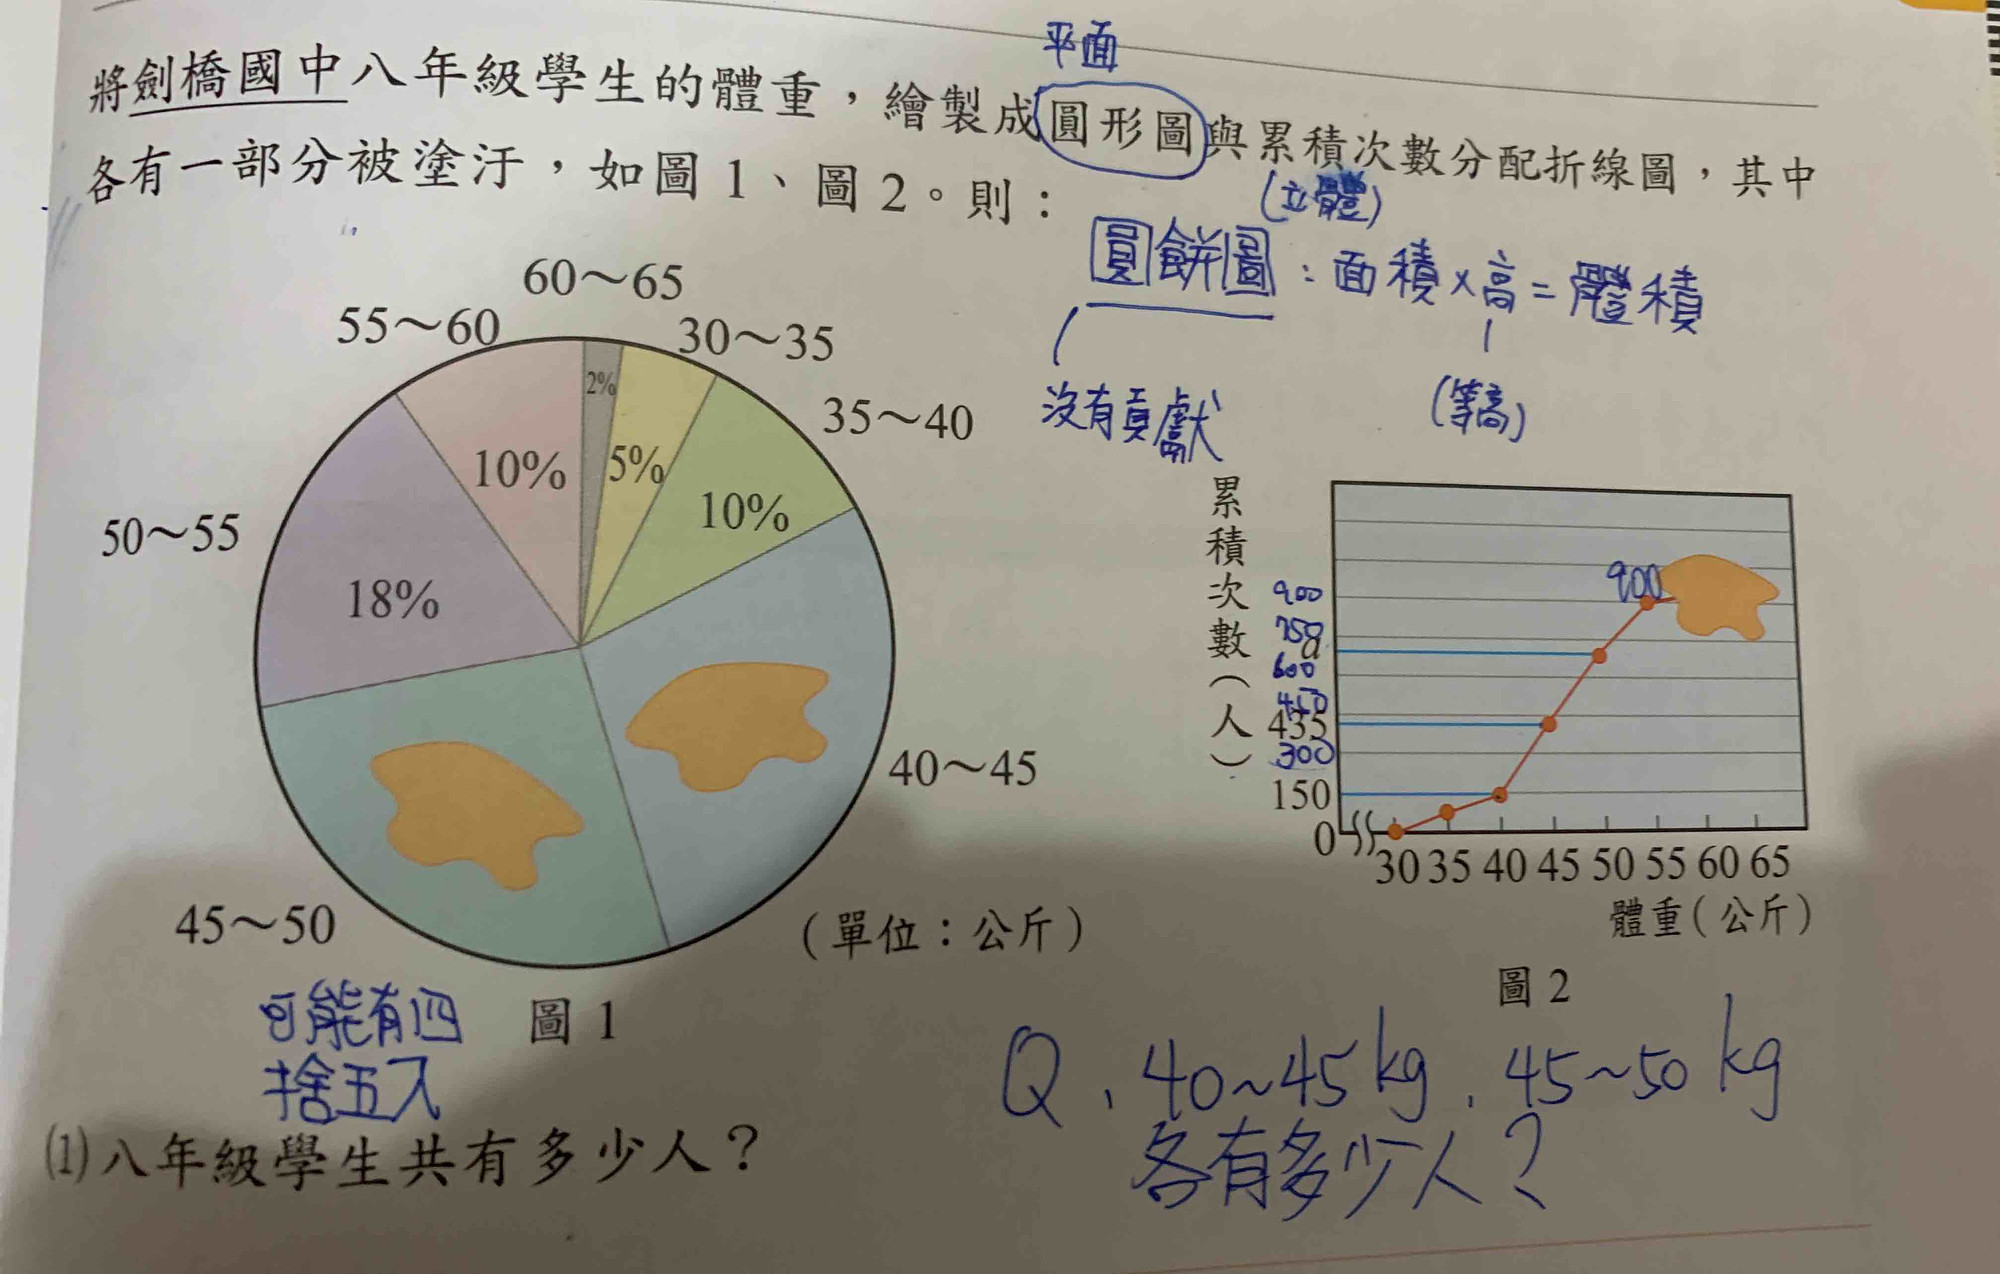 平面
將劍橋國中八年級學生的體重，繪製成圓形圖與累積次數分配折線圖，其中
各有一部分被塗汙，如圖1、圖2。則：
(立體)
圓餅圖：面積×高=體積
沒有貢獻
(等高)
60～65
55～60
30～35
35～40
50～55
40～45
45～50
2%
5%
10%
10%
18%
(單位：公斤)
圖1
可能有四
捨五入
累積次數(人)
900
900
750
a
600
450
435
300
150
0
30 35 40 45 50 55 60 65
體重(公斤)
圖2
(1)八年級學生共有多少人？
Q、40~45kg、45~50kg
各有多少人？